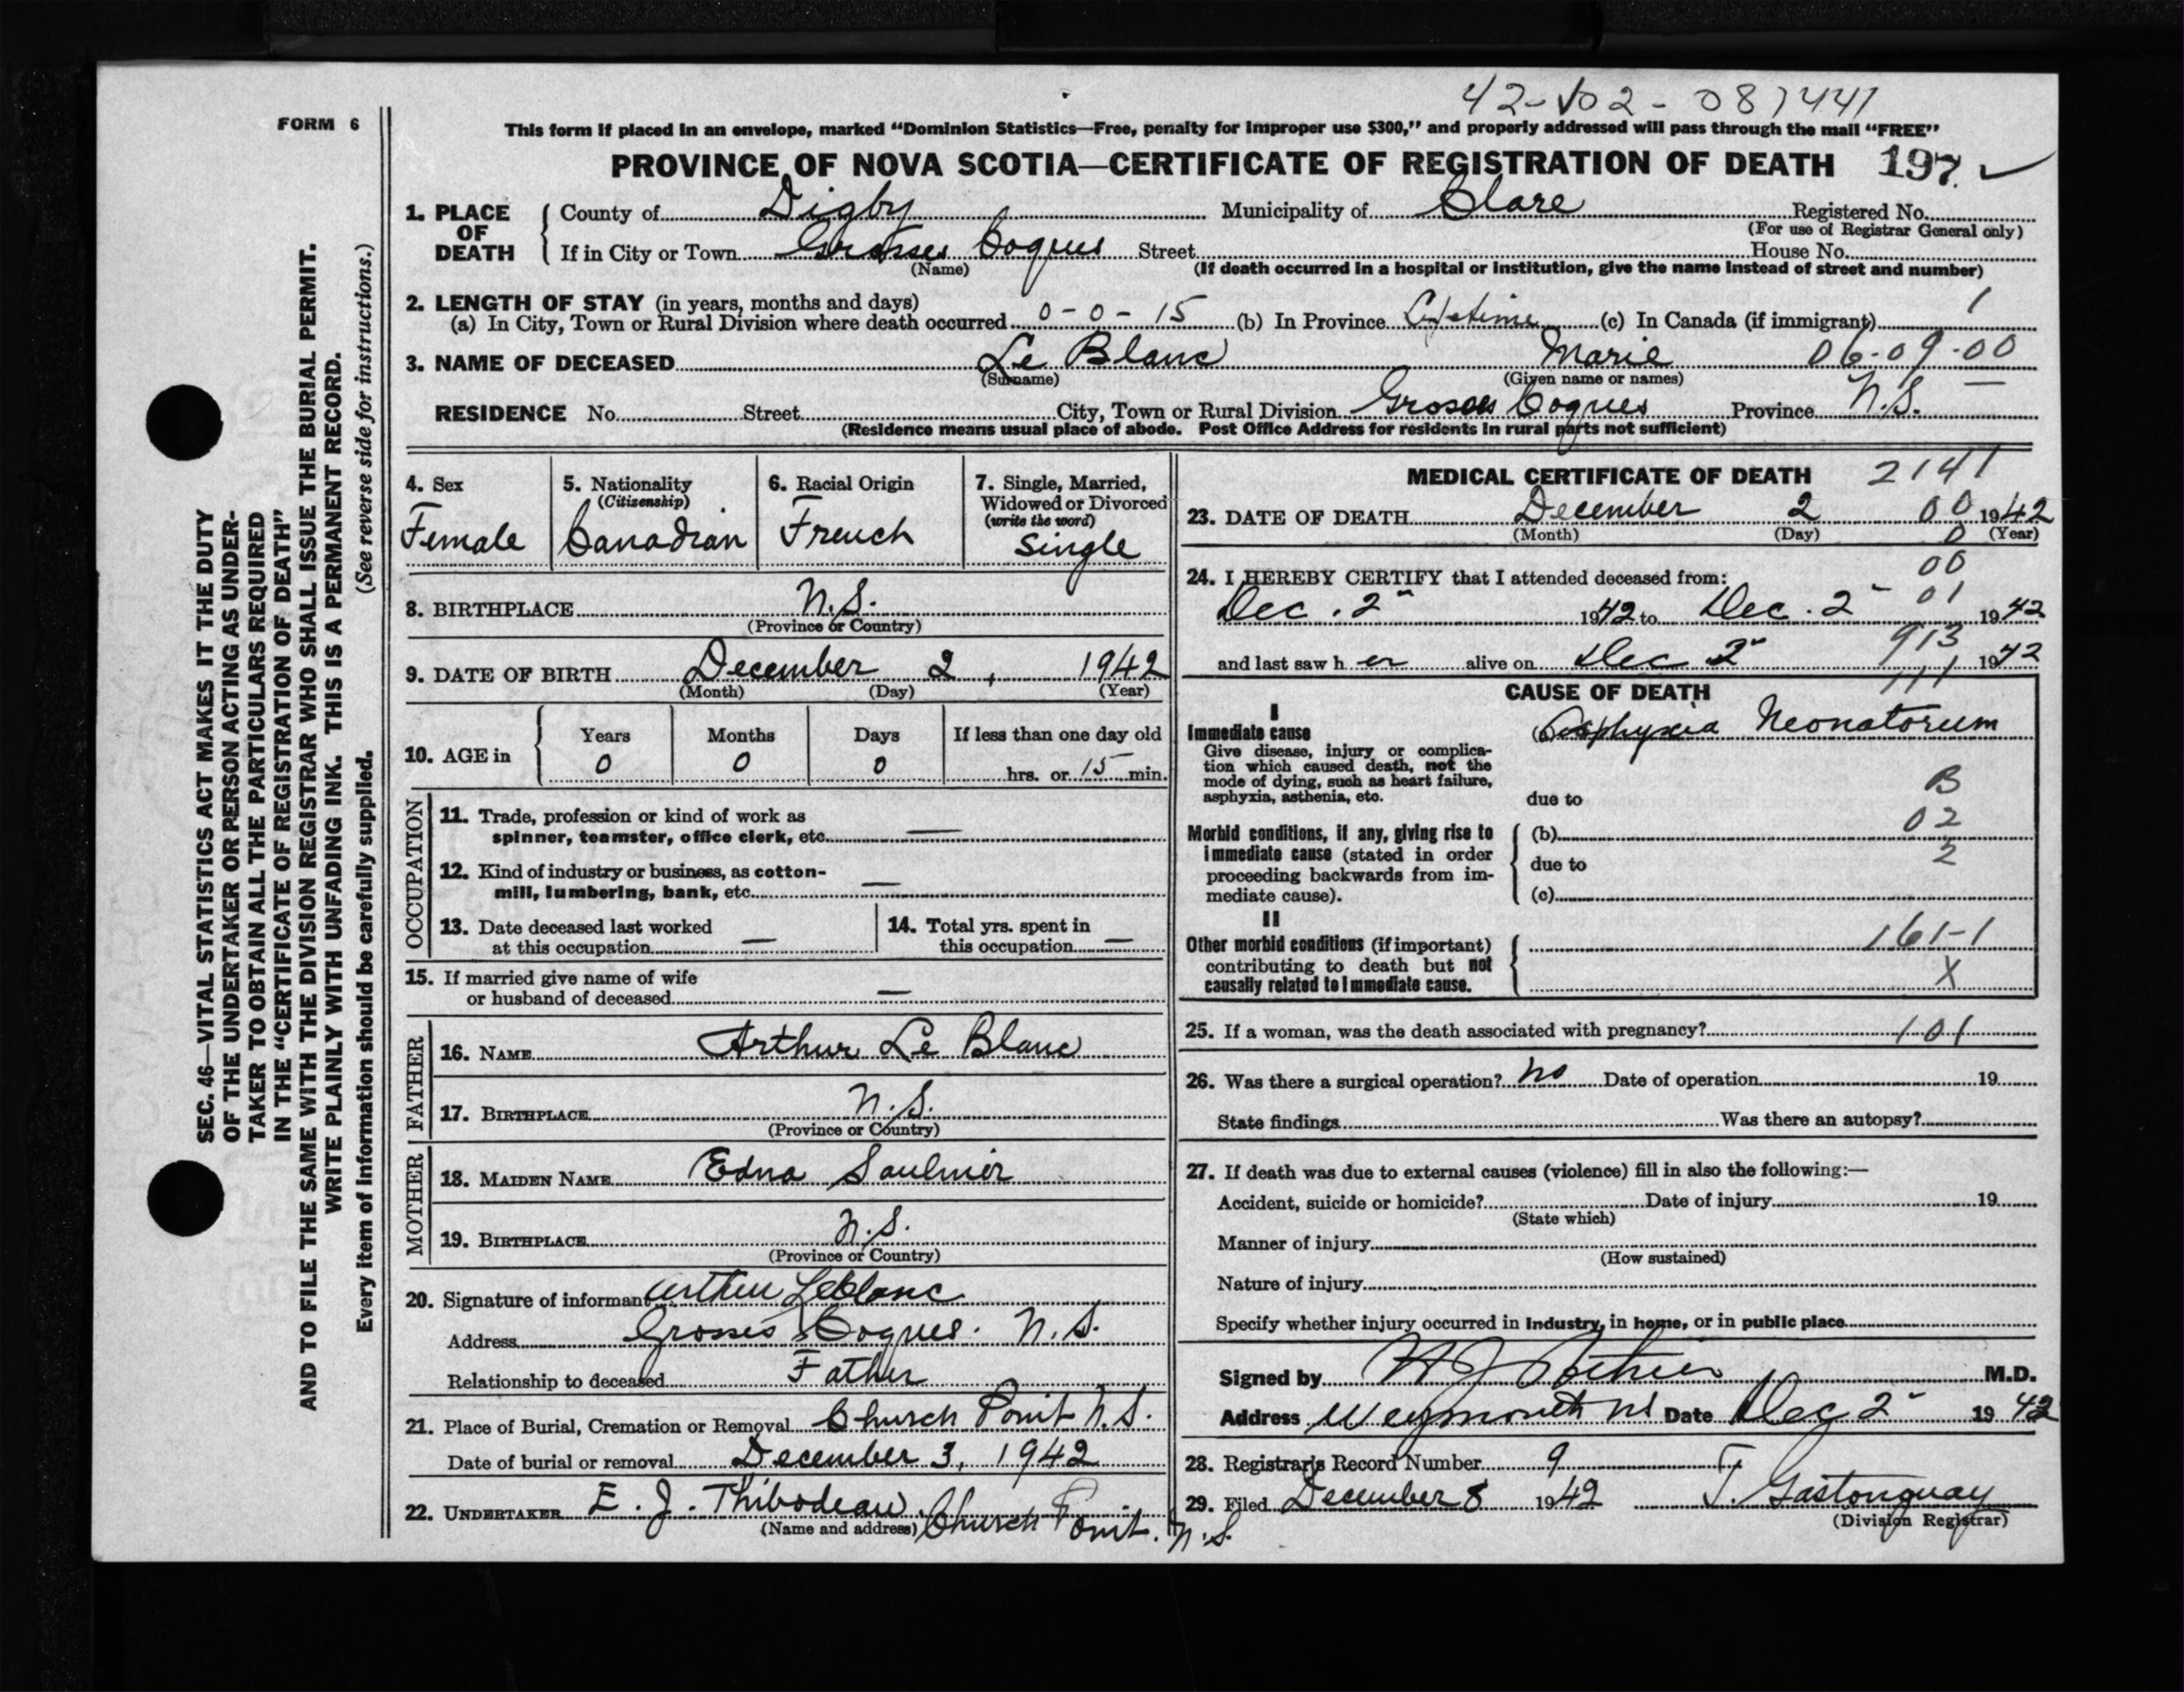 42-102-087441
FORM 6
This form if placed in an envelope, marked “Dominion Statistics—Free, penalty for improper use $300,” and properly addressed will pass through the mail “FREE”
PROVINCE OF NOVA SCOTIA—CERTIFICATE OF REGISTRATION OF DEATH 197.
1. PLACE OF DEATH County of Digby Municipality of Clare Registered No.
(For use of Registrar General only)
If in City or Town Grosses Coques Street House No.
(Name) (If death occurred in a hospital or institution, give the name instead of street and number)
2. LENGTH OF STAY (in years, months and days) 1
(a) In City, Town or Rural Division where death occurred 0-0-15 (b) In Province Lifetime (c) In Canada (if immigrant)
3. NAME OF DECEASED Le Blanc Marie 06-09-00
(Surname) (Given name or names)
RESIDENCE No. Street City, Town or Rural Division Grosses Coques Province N.S.
(Residence means usual place of abode. Post Office Address for residents in rural parts not sufficient)
4. Sex 5. Nationality 6. Racial Origin 7. Single, Married,
(Citizenship) Widowed or Divorced
(write the word)
Female Canadian French Single
8. BIRTHPLACE N.S.
(Province or Country)
9. DATE OF BIRTH December 2, 1942
(Month) (Day) (Year)
10. AGE in Years Months Days If less than one day old
0 0 0 hrs. or 15 min.
OCCUPATION
11. Trade, profession or kind of work as
spinner, teamster, office clerk, etc. —
12. Kind of industry or business, as cotton-
mill, lumbering, bank, etc. —
13. Date deceased last worked
at this occupation —
14. Total yrs. spent in
this occupation —
15. If married give name of wife
or husband of deceased —
FATHER
16. NAME Arthur Le Blanc
17. BIRTHPLACE N.S.
(Province or Country)
MOTHER
18. MAIDEN NAME Edna Saulnier
19. BIRTHPLACE N.S.
(Province or Country)
20. Signature of informant Arthur Leblanc
Address Grosses Coques. N.S.
Relationship to deceased Father
21. Place of Burial, Cremation or Removal Church Point N.S.
Date of burial or removal December 3, 1942
22. UNDERTAKER E. J. Thibodeau,
(Name and address) Church Point. N.S.
MEDICAL CERTIFICATE OF DEATH 2141
23. DATE OF DEATH December 2 00 1942
(Month) (Day) 0 (Year)
24. I HEREBY CERTIFY that I attended deceased from: 00
Dec. 2" 1942 to Dec. 2" 01 1942
and last saw h er alive on Dec 2" 913 1942
CAUSE OF DEATH 111
I
Immediate cause Asphyxia Neonatorum
Give disease, injury or complica-
tion which caused death, not the
mode of dying, such as heart failure,
asphyxia, asthenia, etc.
B
due to
02
Morbid conditions, if any, giving rise to
immediate cause (stated in order
proceeding backwards from im-
mediate cause).
(b)
2
due to
(c)
II
Other morbid conditions (if important)
contributing to death but not
causally related to immediate cause.
161-1
X
25. If a woman, was the death associated with pregnancy? 101
26. Was there a surgical operation? no Date of operation 19
State findings Was there an autopsy?
27. If death was due to external causes (violence) fill in also the following:—
Accident, suicide or homicide? Date of injury 19
(State which)
Manner of injury
(How sustained)
Nature of injury
Specify whether injury occurred in industry, in home, or in public place
Signed by M.D.
Address Weymouth NS Date Dec 2" 1942
28. Registrar's Record Number 9
29. Filed December 8 1942 J. Gastonguay
(Division Registrar)
SEC. 46—VITAL STATISTICS ACT MAKES IT THE DUTY
OF THE UNDERTAKER OR PERSON ACTING AS UNDER-
TAKER TO OBTAIN ALL THE PARTICULARS REQUIRED
IN THE “CERTIFICATE OF REGISTRATION OF DEATH”
AND TO FILE THE SAME WITH THE DIVISION REGISTRAR WHO SHALL ISSUE THE BURIAL PERMIT.
WRITE PLAINLY WITH UNFADING INK. THIS IS A PERMANENT RECORD.
Every item of information should be carefully supplied. (See reverse side for instructions.)